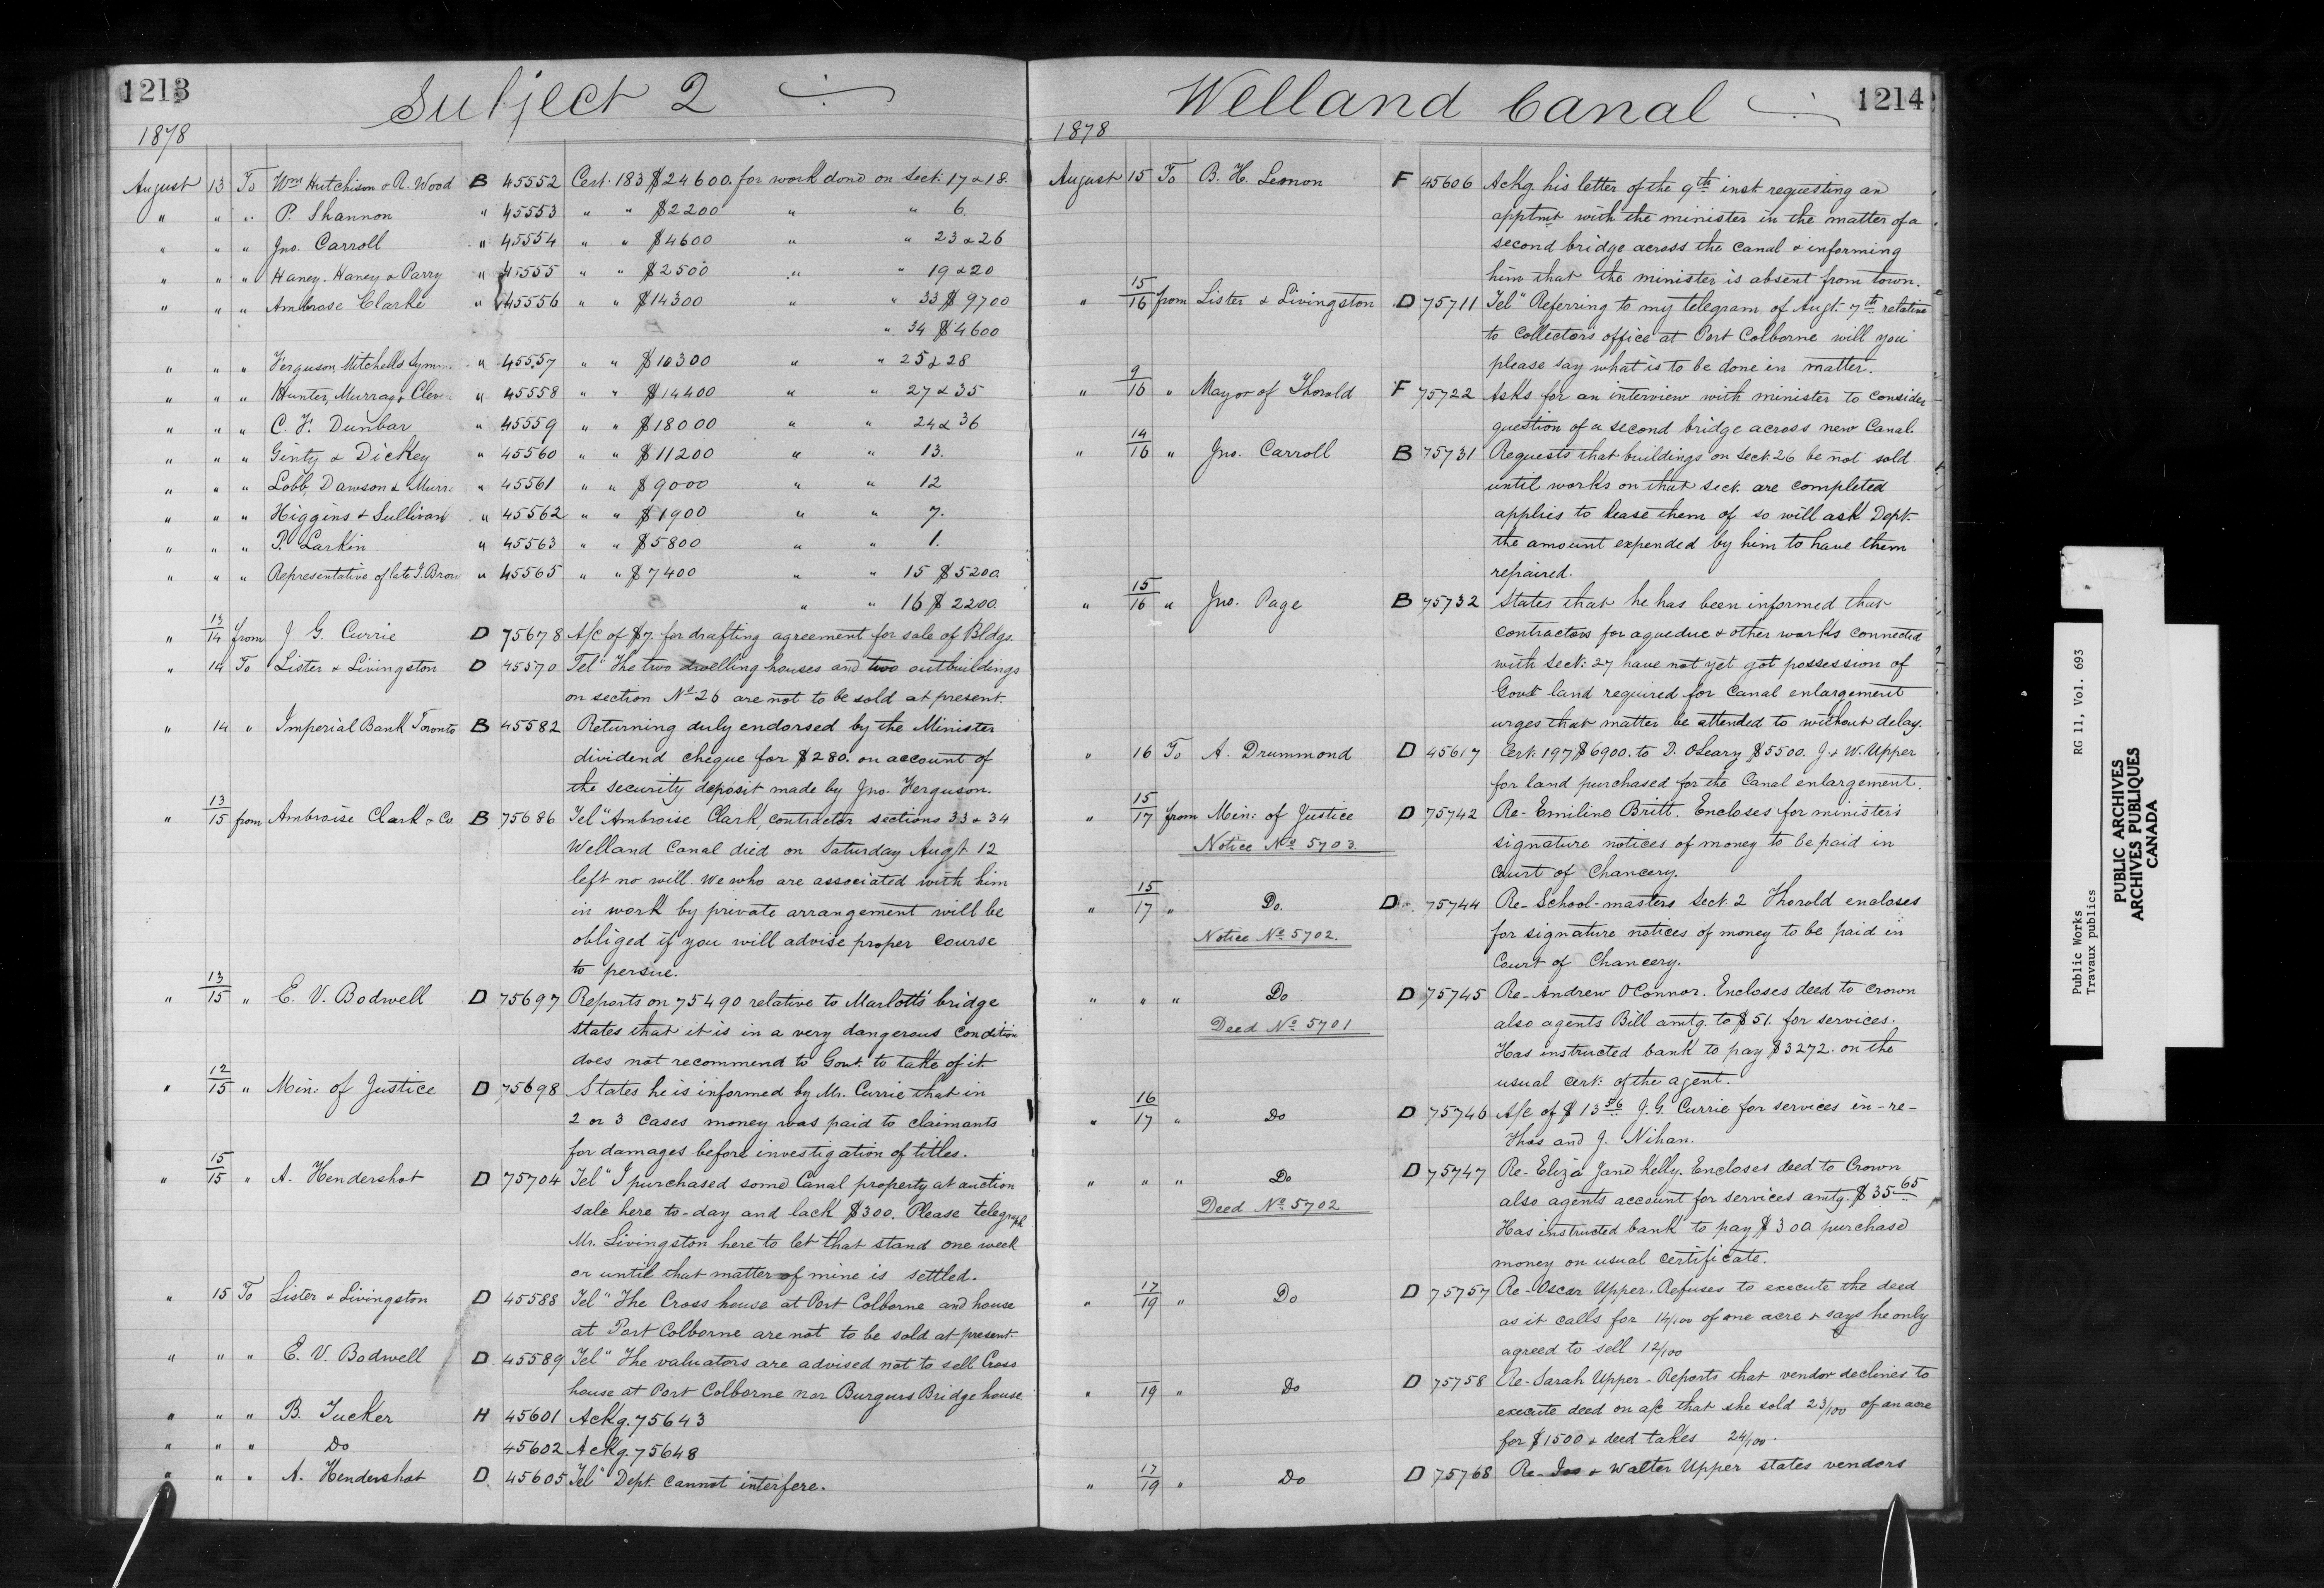 1213
Subject 2
1878
August 13 To Wm Hutchison & R. Wood B 45552 Cert. 183 $24600. for work done on Sect: 17 & 18.
" " " P. Shannon " 45553 " " $2200 " " 6.
" " " Jno. Carroll " 45554 " " $4600 " " 23 & 26
" " " Haney. Haney & Parry " 45555 " " $2500 " " 19 & 20
" " " Ambrose Clarke " 45556 " " $14300 " " 33 $9700
" 34 $4600
" " " Ferguson, Mitchell & Symm " 45557 " " $10300 " " 25 & 28
" " " Hunter, Murray & Cleve " 45558 " " $14400 " " 27 & 35
" " " C. F. Dunbar " 45559 " " $18000 " " 24 & 36
" " " Ginty & Dickey " 45560 " " $11200 " " 13.
" " " Lobb, Dawson & Murr. " 45561 " " $9000 " " 12
" " " Higgins & Sullivan " 45562 " " $1900 " " 7.
" " " P. Larkin " 45563 " " $5800 " " 1.
" " " Representative of late J. Brow " 45565 " " $7400 " " 15 $5200.
" " 16 $2200.
" 13/14 from J. G. Currie D 75678 A/c of $7. for drafting agreement for sale of Bldgs.
" 14 To Lister & Livingston D 45570 Tel" The two dwelling houses and two outbuildings
on section No 26 are not to be sold at present.
" 14 " Imperial Bank Toronto B 45582 Returning duly endorsed by the Minister
dividend cheque for $280. on account of
the security deposit made by Jno. Ferguson.
" 13/15 from Ambroise Clark & Co. B 75686 Tel" Ambroise Clark, contractor sections 33 & 34
Welland Canal died on Saturday Augt 12
left no will. We who are associated with him
in work by private arrangement will be
obliged if you will advise proper course
to persue.
" 13/15 " E. V. Bodwell D 75697 Reports on 75490 relative to Marlatts' bridge
states that it is in a very dangerous condition
does not recommend to Govt. to take of it.
" 12/15 " Min: of Justice D 75698 States he is informed by Mr. Currie that in
2 or 3 cases money was paid to claimants
for damages before investigation of titles.
" 15/15 " A. Hendershot D 75704 Tel" I purchased some Canal property at auction
sale here to-day and lack $300. Please telegraph
Mr. Livingston here to let that stand one week
or until that matter of mine is settled.
" 15 To Lister & Livingston D 45588 Tel" The Cross house at Port Colborne and house
at Port Colborne are not to be sold at present.
" " " E. V. Bodwell D. 45589 Tel" The valuators are advised not to sell Cross
house at Port Colborne nor Burgurs Bridge house.
" " " B. Tucker H 45601 Ackg. 75643
" " " Do 45602 Ackg. 75648
" " " A. Hendershot D. 45605 Tel" Dept. cannot interfere.
Welland Canal
1214
1878
August 15 To B. H. Lemon F 45606 Ackg. his letter of the 9th inst requesting an
apptmt with the minister in the matter of a
second bridge across the Canal & informing
him that the minister is absent from town.
" 15/16 from Lister & Livingston D 75711 Tel" Referring to my telegram of Augt. 7th relative
to Collectors office at Port Colborne will you
please say what is to be done in matter.
" 9/16 " Mayor of Thorold F 75722 Asks for an interview with minister to consider
question of a second bridge across new Canal.
" 14/16 " Jno. Carroll B 75731 Requests that buildings on Sect. 26 be not sold
until works on that sect. are completed
applies to lease them of so will ask Dept.
the amount expended by him to have them
repaired.
" 15/16 " Jno. Page B 75732 States that he has been informed that
contractors for aqueduc & other works connected
with Sect: 27 have not yet got possession of
Govt land required for Canal enlargement
urges that matter be attended to without delay.
" 16 To A. Drummond D 45617 Cert: 197 $6900. to D. OLeary $5500. J & W. Upper
for land purchased for the Canal enlargement.
" 15/17 from Min: of Justice D 75742 Re- Emiline Britt. Encloses for ministers
Notice No 5703. signature notices of money to be paid in
Court of Chancery.
" 15/17 " Do. D. 75744 Re- School-masters Sect. 2 Thorold encloses
Notice No 5702. for signature notices of money to be paid in
Court of Chancery.
" " " Do D 75745 Re- Andrew O'Connor. Encloses deed to Crown
Deed No 5701 also agents Bill amtg. to $51. for services.
Has instructed bank to pay $3272. on the
usual cert: of the agent.
" 16/17 " Do D 75746 A/c of $13 56 J. G. Currie for services in-re-
Thos and J. Nihan.
" " " Do D 75747 Re- Eliza Jane Kelly. Encloses deed to Crown
Deed No 5702 also agents account for services amtg. $35 65
Has instructed bank to pay $300. purchase
money on usual certificate.
" 17/19 " Do D 75757 Re- Oscar Upper. Refuses to execute the deed
as it calls for 14/100 of one acre & says he only
agreed to sell 12/100
" 19 " Do D 75758 Re- Sarah Upper - Reports that vendor declines to
execute deed on a/c that she sold 23/100 of an acre
for $1500 & deed takes 24/100.
" 17/19 " Do D 75768 Re- Jas & Walter Upper states vendors
Public Works RG 11, Vol. 693
Travaux publics
PUBLIC ARCHIVES
ARCHIVES PUBLIQUES
CANADA